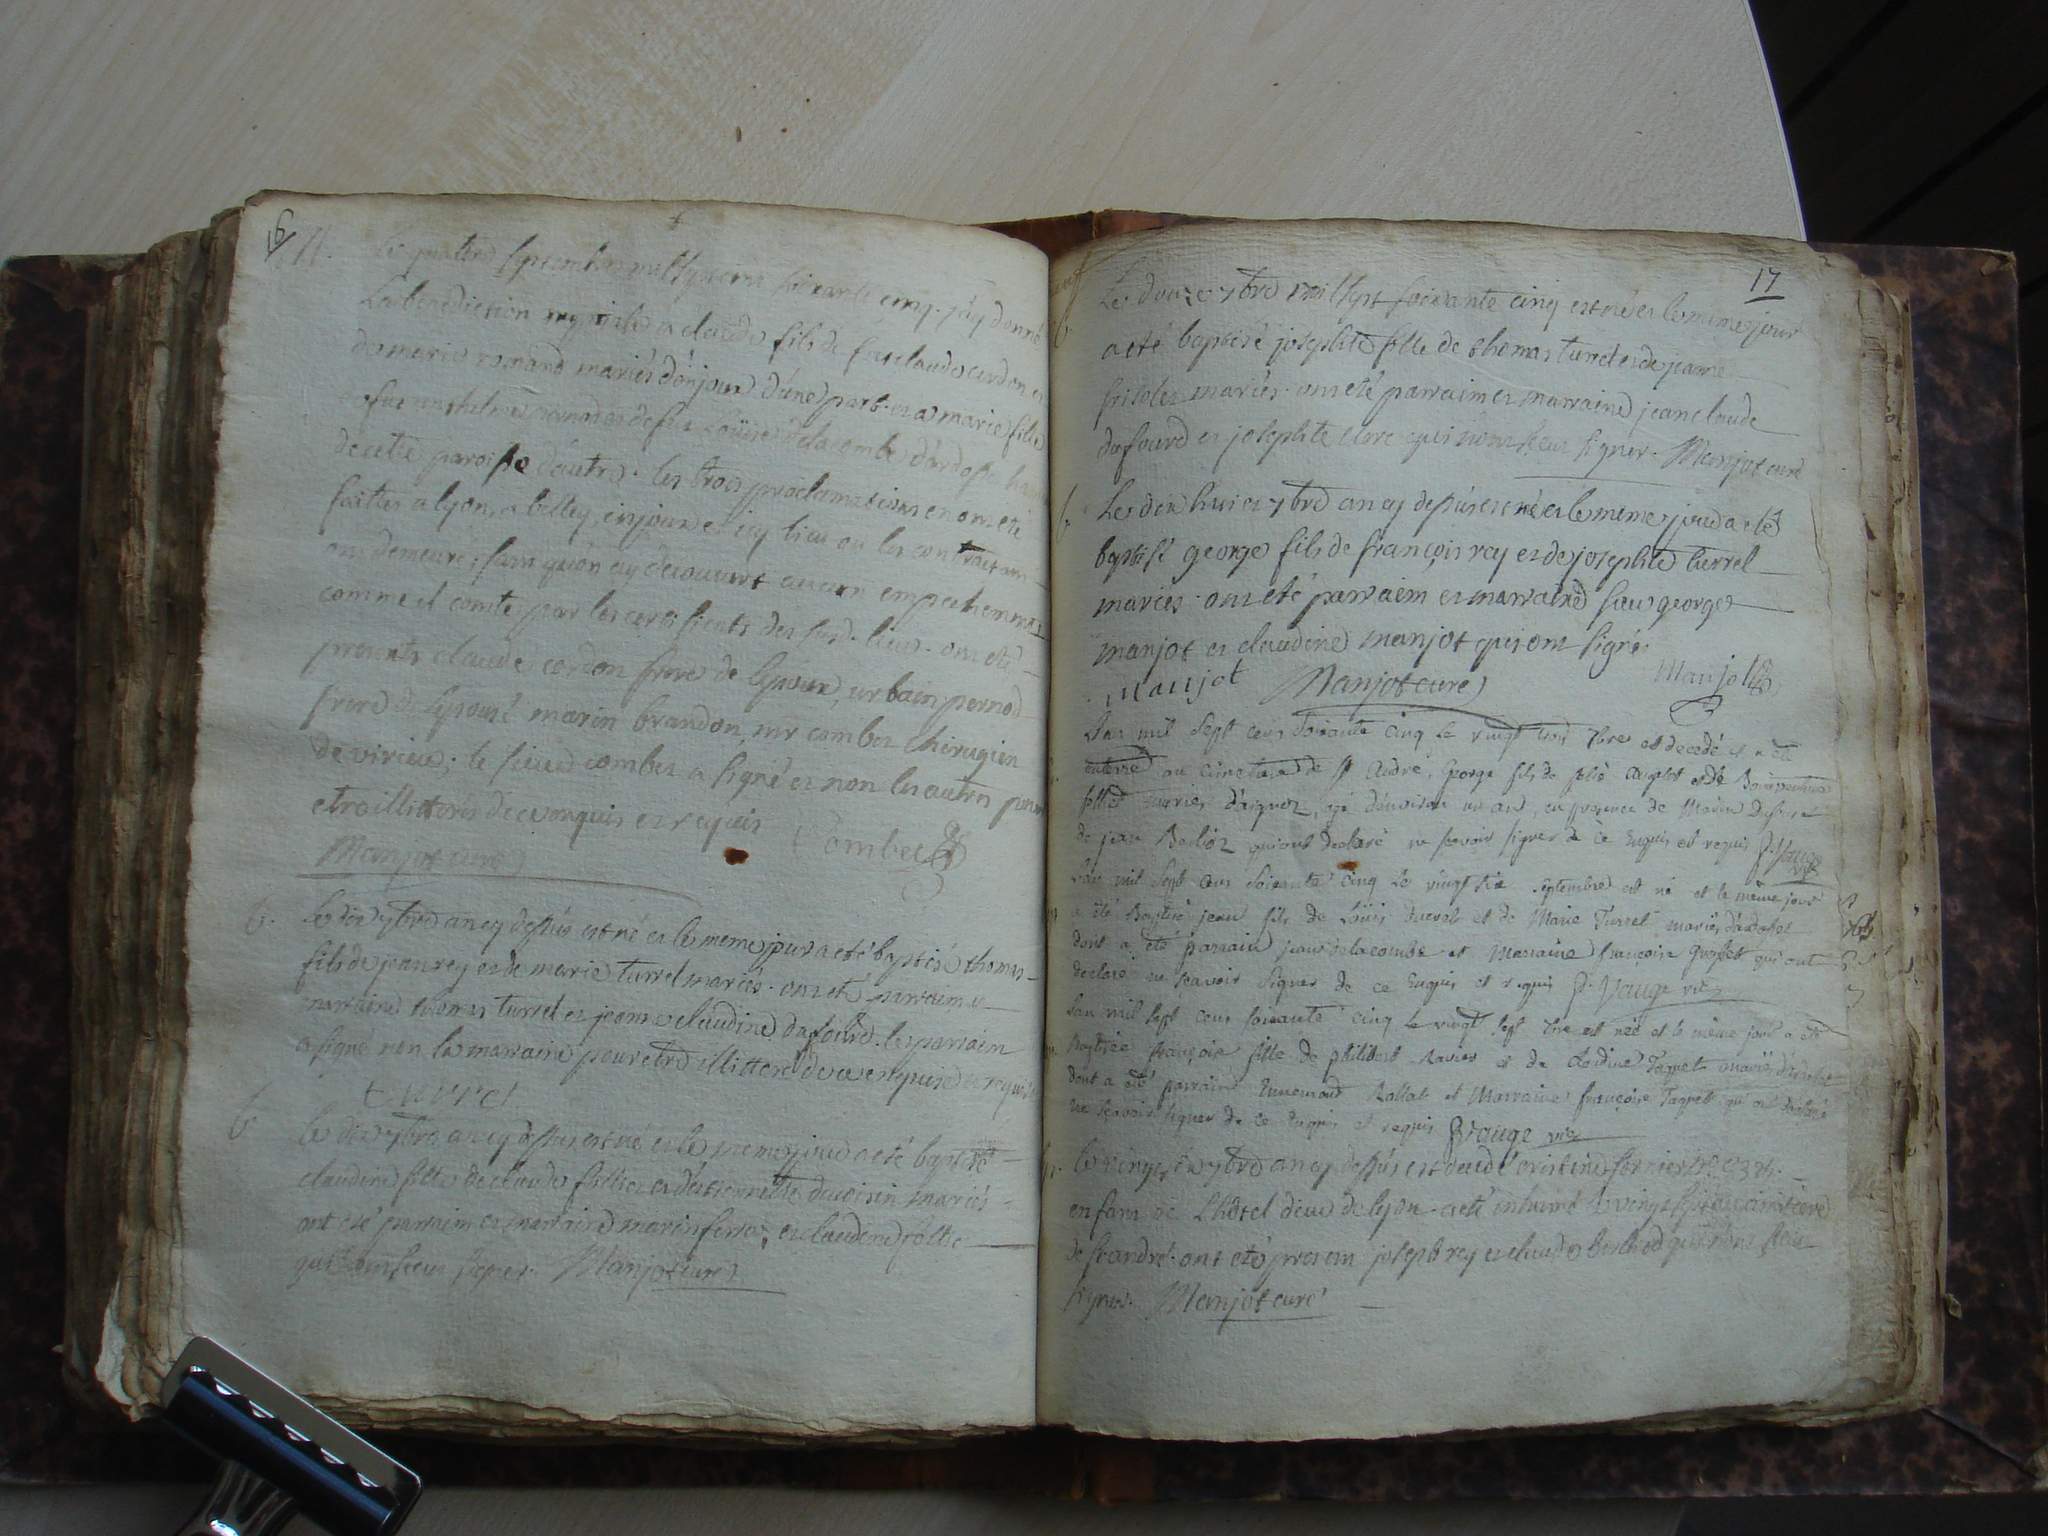 16
Le quatre septembre mil sept cens soixante cinq j'ay donné
La benediction nuptiale a claude fils de feu claude cordon et
de marie romand mariés d'injoux d'une part et a marie fille
de cette paroisse d'autre. les trois proclamations en ont eté
faittes a lyon, a belley, injoux et icy lieu ou les contractans
ont demeuré; sans qu'on ay decouvert aucun empechemens
comme il conste par les certificats des susd. lieux. ont eté
presents claude cordon frere de l'epoux, urbain pernod
frere de l'epouse marin brandon, mr combes chirugien
de virieu; le sieur combes a signé et non les autres pour
etre illitterés de ce enquis et requis Combes
Manjot curé
b. Le dix 7bre an cy dessus est né et le meme jour a eté baptisé thomas
fils de jean rey et de marie turrel mariés. ont eté parraim et
marraine thomas turrel et jeanne claudine dufourd. le parraim
a signé non la marraine pour etre illitteré de ce enquise et requise
turrel
b Le dix 7bre an cy dessus est né et le meme jour a eté baptisé
claudine fille de claude fillier et d'estiennette devoisin mariés
ont eté parraim et marraine marin ferraz et claudine rollie
qui n'ont sceus signer. Manjot curé
17
b Le douze 7bre mil sept soixante cinq est né et le meme jour
a eté baptisé josephte fille de thomas turrel et de jeanne
mariés. ont eté parraim et marraine jean claude
dufourd et josephte qui n'ont sceus signer. Manjot curé
b Le dix huit 7bre an cy dessus est né et le meme jour a eté
baptisé george fils de françois rey et de josephte turrel
mariés. ont eté parraim et marraine sieur george
manjot et claudine manjot qui ont signé.
Manjot Manjot curé Manjot
L'an mil sept cens soixante cinq le vingt trois 7bre est decedé et a eté
enterré au cimetiere de St André, George fils de
agé d'environ un an, en presence de Marin Dufour et
de jean Berlioz qui ont declaré ne sçavoir signer de ce enquis et requis P. Vauge vic
L'an mil sept cens soixante cinq le vingt six septembre est né et le meme jour
a été Baptisé jean fils de Loüis ducrot et de Marie Turrel mariés d'ardosset
dont a été parrain jean delacombe et Marraine françoise qui ont
declaré ne sçavoir signer de ce enquis et requis P. Vauge vic
L'an mil sept cens soixante cinq le vingt sept 7bre est née et le même jour a été
Baptisée françoise fille de philibert Ravier et de Claudine Taquet mariés d'ardosset
dont a été parrain Ennemond Rollat et Marraine françoise Taquet qui ont declaré
ne sçavoir signer de ce enquis et requis P Vauge vic
Le vingt six 7bre an cy dessus est decedé fernier
enfant de L'hotel dieu de lyon. a eté inhumé le vingt sept au cimitiere
de st andré. ont eté presents joseph rey et claude berthod qui n'ont sceus
signer. Manjot curé